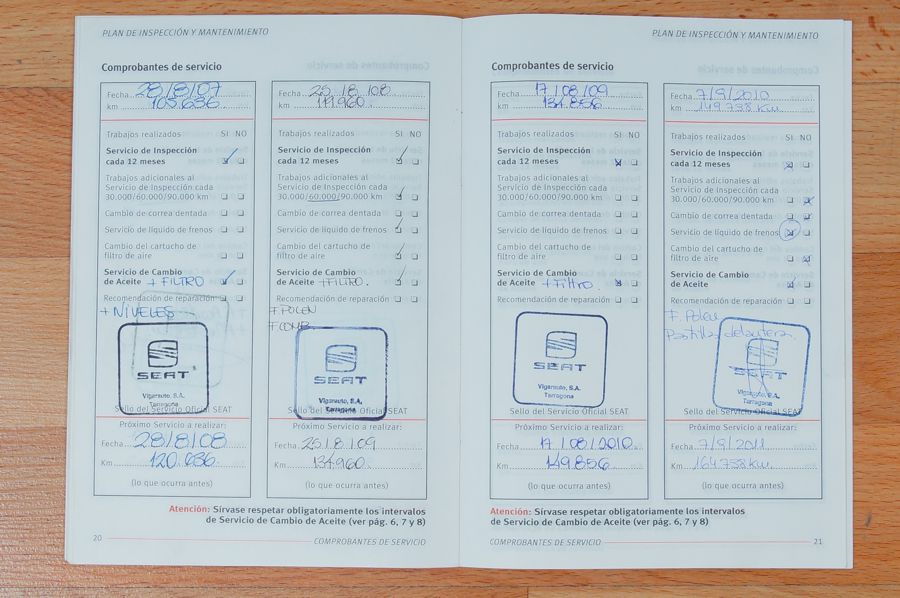 PLAN DE INSPECCIÓN Y MANTENIMIENTO
Comprobantes de servicio
Fecha 28/8/07
km 105.636.
Trabajos realizados SI NO
Servicio de Inspección
cada 12 meses
Trabajos adicionales al
Servicio de Inspección cada
30.000/60.000/90.000 km
Cambio de correa dentada
Servicio de líquido de frenos
Cambio del cartucho de
filtro de aire
Servicio de Cambio
de Aceite + FILTRO
Recomendación de reparación
+ NIVELES
SEAT
Vigarauto, S.A.
Tarragona
Sello del Servicio Oficial SEAT
Próximo Servicio a realizar:
Fecha 28/8/08
Km 120.636
(lo que ocurra antes)
Fecha 25/8/08
km 119.960.
Trabajos realizados SI NO
Servicio de Inspección
cada 12 meses
Trabajos adicionales al
Servicio de Inspección cada
30.000/60.000/90.000 km
Cambio de correa dentada
Servicio de líquido de frenos
Cambio del cartucho de
filtro de aire
Servicio de Cambio
de Aceite +FILTRO.
Recomendación de reparación
F. POLEN
F. COMB
SEAT
Vigarauto, S.A.
Tarragona
Sello del Servicio Oficial SEAT
Próximo Servicio a realizar:
Fecha 25/8/09
Km 134.960.
(lo que ocurra antes)
Atención: Sírvase respetar obligatoriamente los intervalos
de Servicio de Cambio de Aceite (ver pág. 6, 7 y 8)
20 COMPROBANTES DE SERVICIO
PLAN DE INSPECCIÓN Y MANTENIMIENTO
Comprobantes de servicio
Fecha 17/08/09
km 134.856
Trabajos realizados SI NO
Servicio de Inspección
cada 12 meses
Trabajos adicionales al
Servicio de Inspección cada
30.000/60.000/90.000 km
Cambio de correa dentada
Servicio de líquido de frenos
Cambio del cartucho de
filtro de aire
Servicio de Cambio
de Aceite +Filtro.
Recomendación de reparación
SEAT
Vigarauto, S.A.
Tarragona
Sello del Servicio Oficial SEAT
Próximo Servicio a realizar:
Fecha 17/08/2010.
Km 149.856
(lo que ocurra antes)
Fecha 7/9/2010
km 149.738 Km.
Trabajos realizados SI NO
Servicio de Inspección
cada 12 meses
Trabajos adicionales al
Servicio de Inspección cada
30.000/60.000/90.000 km
Cambio de correa dentada
Servicio de líquido de frenos
Cambio del cartucho de
filtro de aire
Servicio de Cambio
de Aceite
Recomendación de reparación
F. Polen
Pastilla delantera.
SEAT
Vigarauto, S.A.
Tarragona
Sello del Servicio Oficial SEAT
Próximo Servicio a realizar:
Fecha 7/9/2011
Km 164738 Km.
(lo que ocurra antes)
Atención: Sírvase respetar obligatoriamente los intervalos
de Servicio de Cambio de Aceite (ver pág. 6, 7 y 8)
COMPROBANTES DE SERVICIO 21